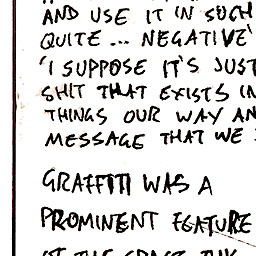 AND USE IT IN SUCH
QUITE ... NEGATIVE'
'I SUPPOSE IT'S JUST
SHIT THAT EXISTS IN
THINGS OUR WAY AN
MESSAGE THAT WE
GRAFFITI WAS A
PROMINENT FEATURE
OF THE SPACE THIS